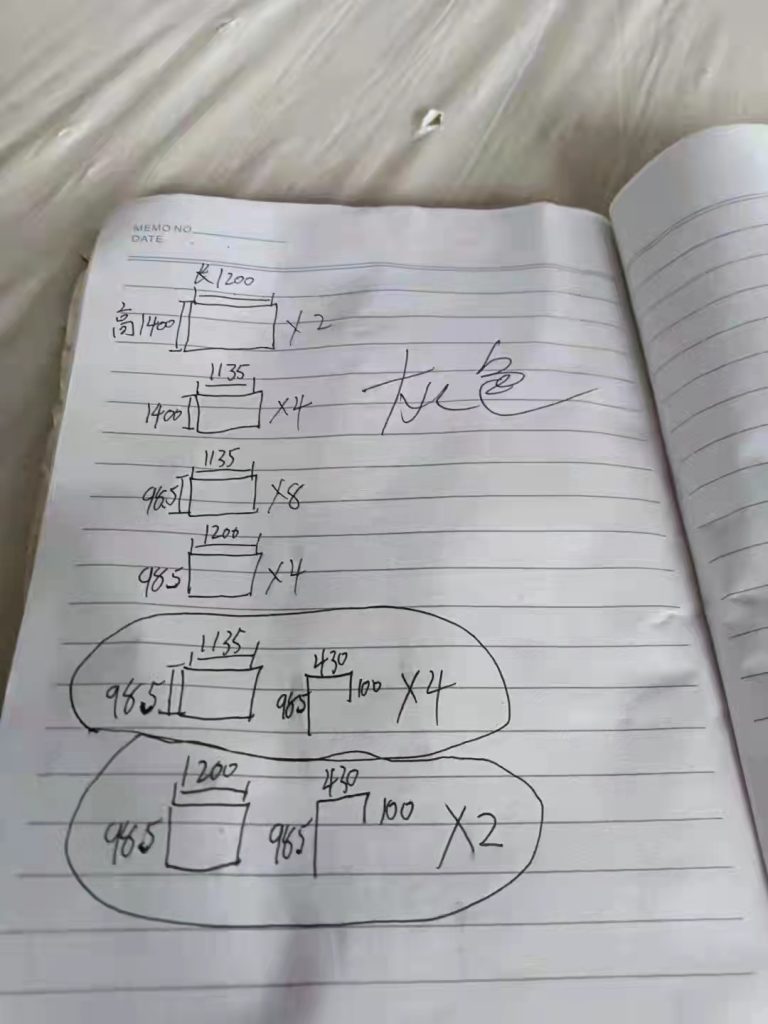 MEMO NO.
DATE
长1200
高1400 ×2
1135
1400 ×4
灰色
1135
985 ×8
1200
985 ×4
1135 430
985 985 100 ×4
1200 430
985 985 100 ×2